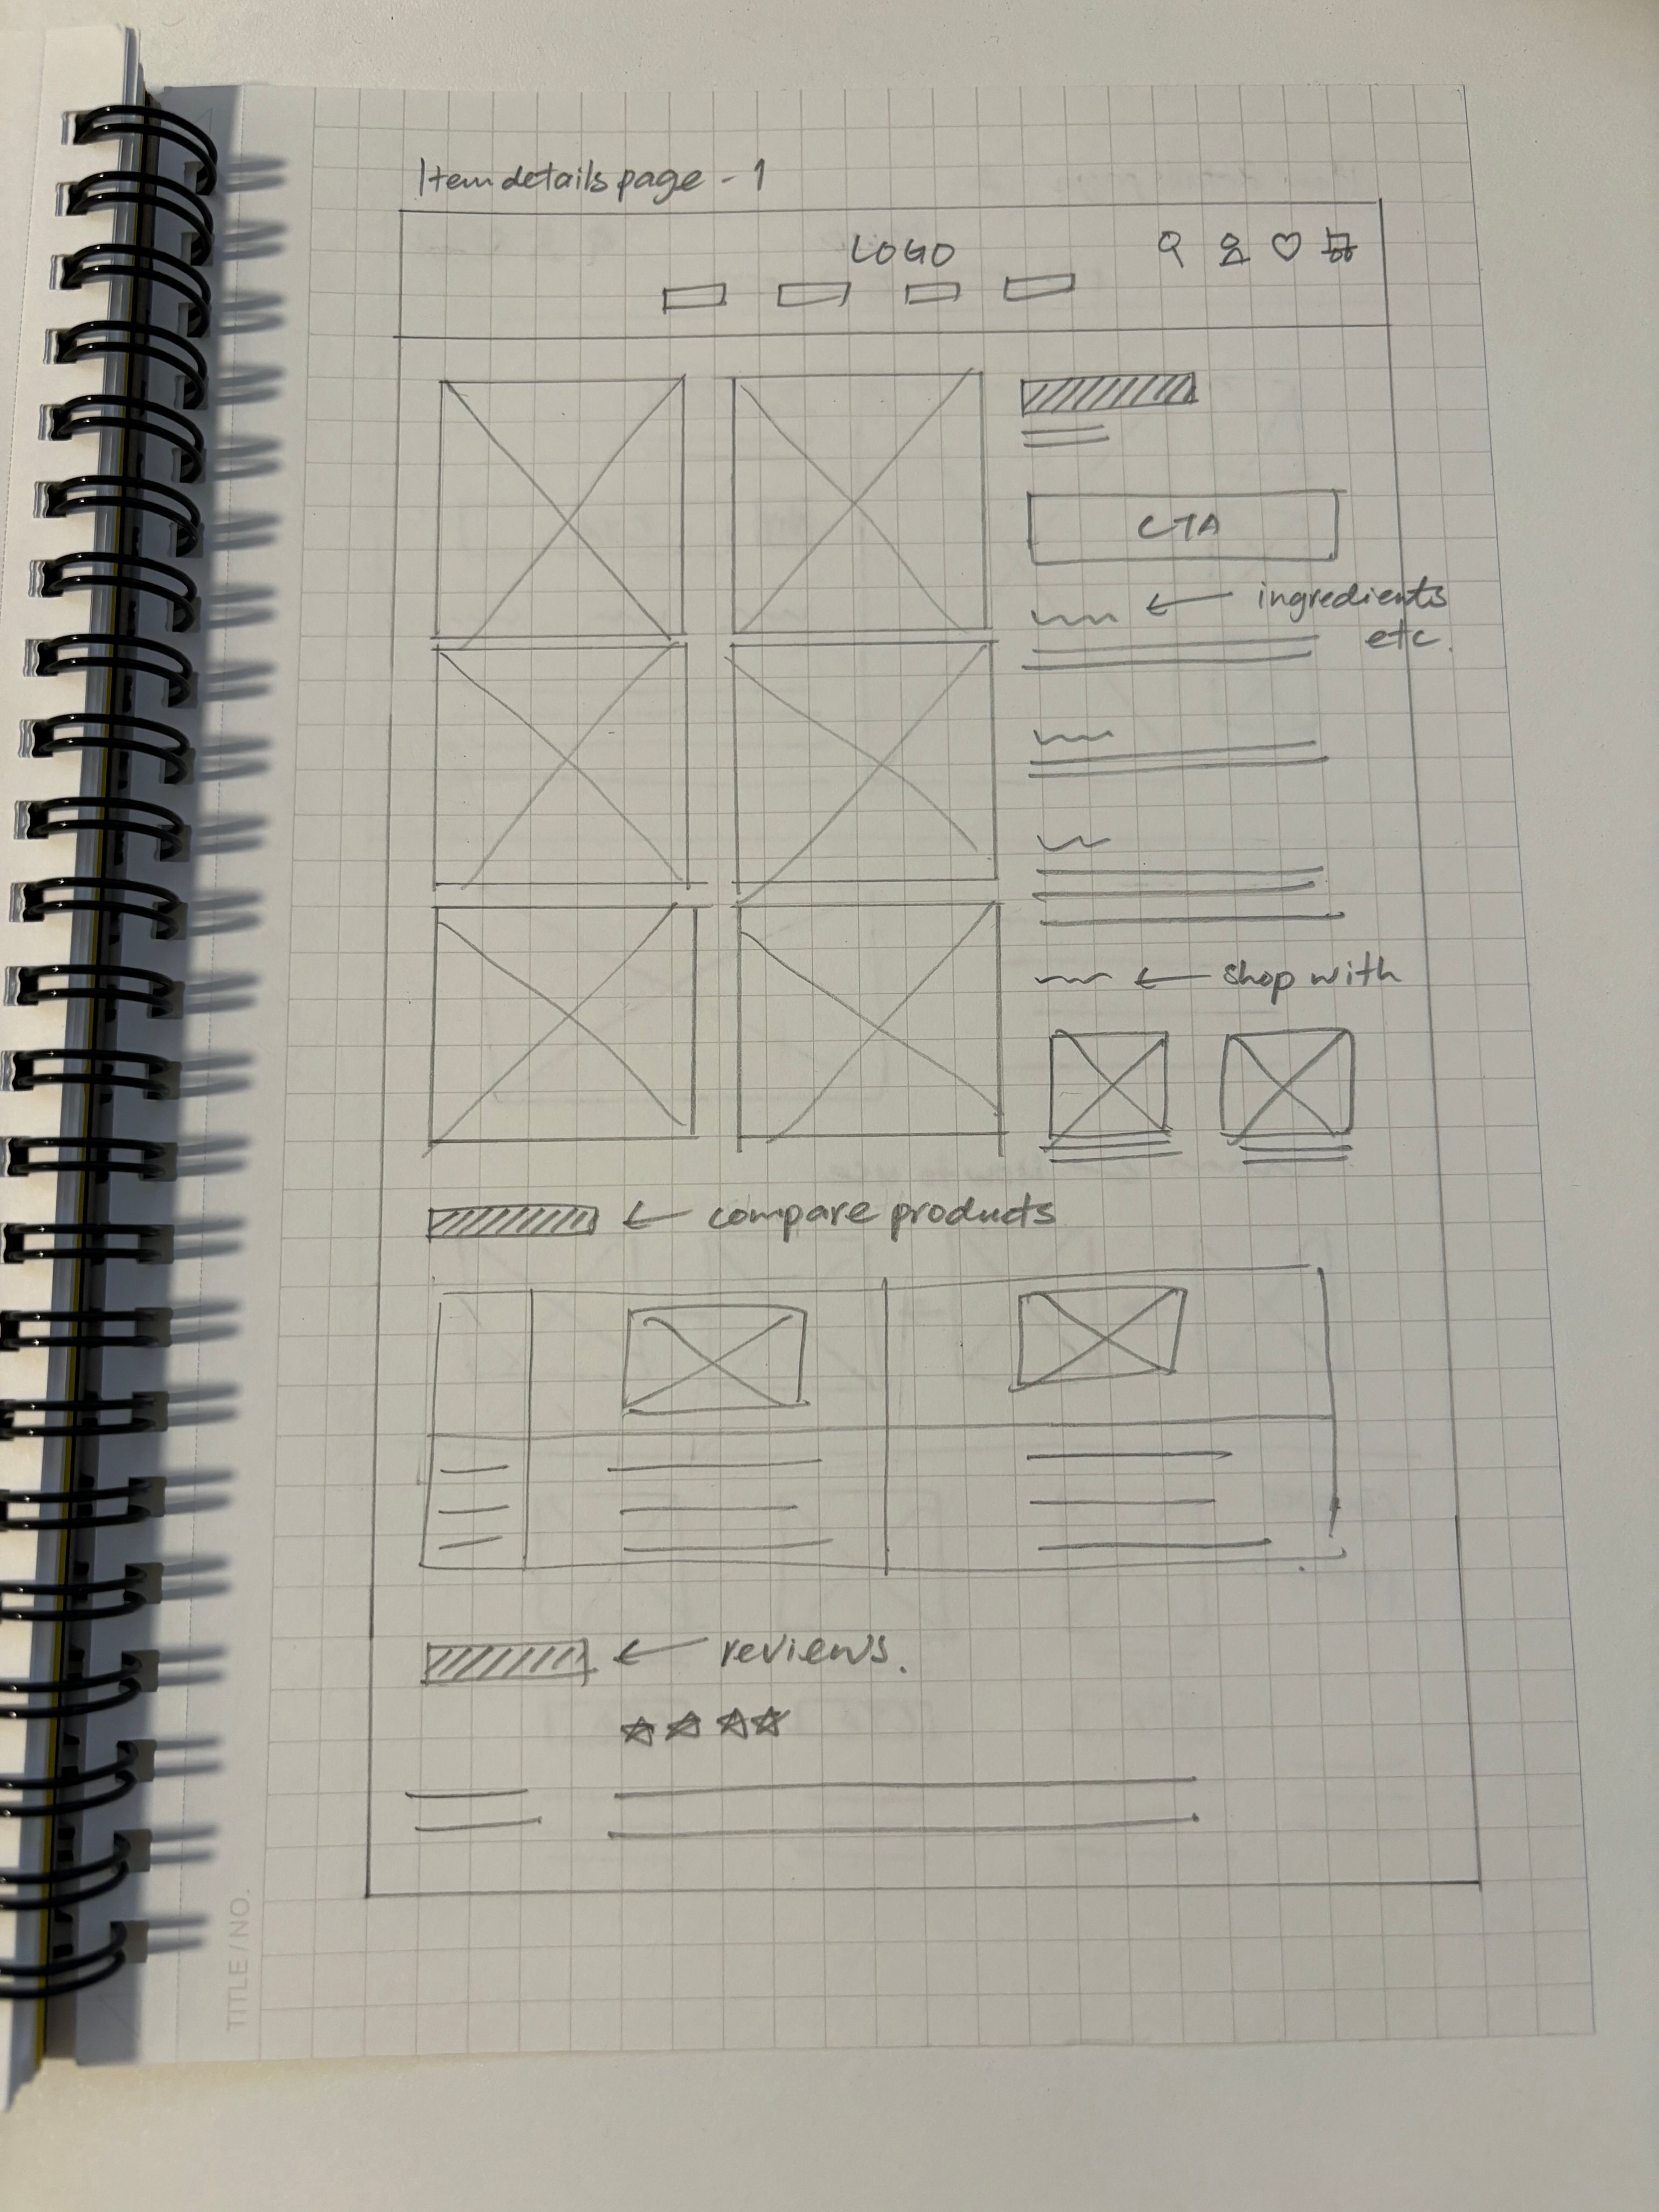 Item details page - 1
LOGO
CTA
ingredients
etc.
shop with
compare products
reviews.
TITLE / NO.